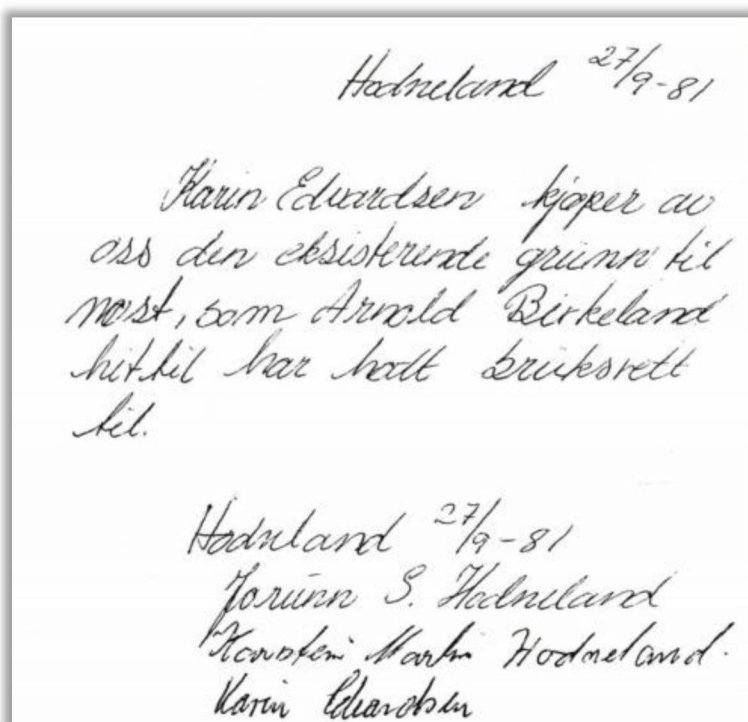 Hodneland 27/9-81
Karin Edvardsen kjøper av
oss den eksisterende grunn til
nøst, som Arnold Birkeland
hittil har hatt bruksrett
til.
Hodneland 27/9-81
Jorunn S. Hodneland
Karstein Martin Hodneland.
Karin Edvardsen